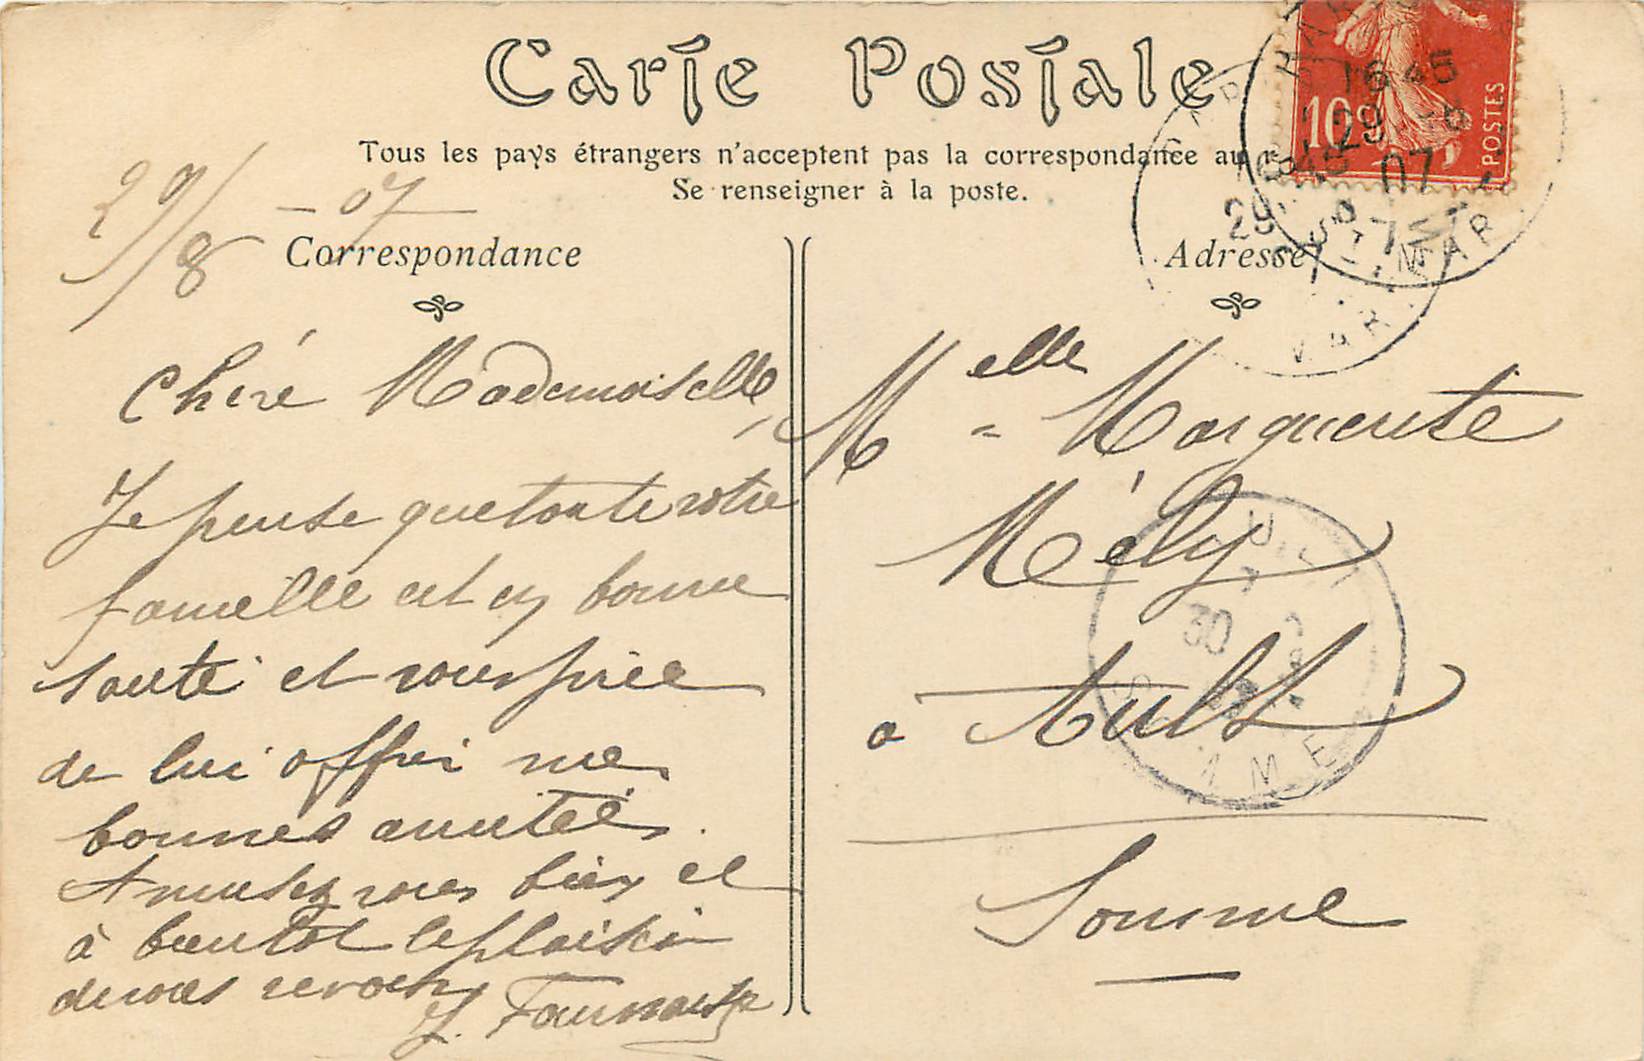 Carte Postale
Tous les pays étrangers n'acceptent pas la correspondance au
Se renseigner à la poste.
29/8 - 07
Correspondance
Chère Mademoiselle,
Je pense que toute votre
famille est en bonne
santé et vous prie
de lui offrir mes
bonnes amitiés.
Amusez vous bien et
à bientot le plaisir
de vous revoir
J.
Adresse
Melle Marguerite
Mély
a Ault
Somme
10
POSTES
16 45
29 8
07
16 45
29 8
07
ST. MAR
MAR
AULT
30
SOMME